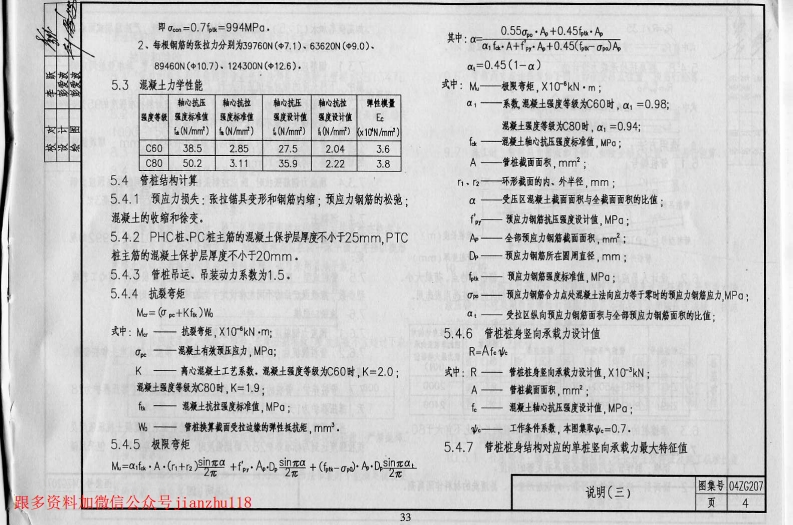 即 σcon=0.7fptk=994MPa。
2、每根钢筋的张拉力分别为39760N(Φ7.1)、63620N(Φ9.0)、
89460N(Φ10.7)、124300N(Φ12.6)。
5.3 混凝土力学性能
强度等级 轴心抗压强度标准值 fck(N/mm²) 轴心抗拉强度标准值 ftk(N/mm²) 轴心抗压强度设计值 fc(N/mm²) 轴心抗拉强度设计值 ft(N/mm²) 弹性模量 Ec (x10⁴N/mm²)
C60 38.5 2.85 27.5 2.04 3.6
C80 50.2 3.11 35.9 2.22 3.8
5.4 管桩结构计算
5.4.1 预应力损失:张拉锚具变形和钢筋内缩;预应力钢筋的松弛;
混凝土的收缩和徐变。
5.4.2 PHC桩、PC桩主筋的混凝土保护层厚度不小于25mm,PTC
桩主筋的混凝土保护层厚度不小于20mm。
5.4.3 管桩吊运、吊装动力系数为1.5。
5.4.4 抗裂弯矩
Mcr=(σpc+Kftk)W₀
式中: Mcr —— 抗裂弯矩,X10⁻⁶kN·m;
σpc —— 混凝土有效预压应力,MPa;
K —— 离心混凝土工艺系数。混凝土强度等级为C60时,K=2.0;
混凝土强度等级为C80时,K=1.9;
ftk —— 混凝土抗拉强度标准值,MPa;
W₀ —— 管桩换算截面受拉边缘的弹性抵抗矩,mm³。
5.4.5 极限弯矩
Mu=α₁fck·A·(r₁+r₂)sinπα/2π +f'py·Ap·Dp sinπα/2π +(fptk-σp0)·Ap·Dp sinπαt/2π
其中: α= (0.55σpo·Ap+0.45fptk·Ap)/(α₁fck·A+f'py·Ap+0.45(fptk-σpo)Ap)
αt=0.45(1-α)
式中: Mu —— 极限弯矩,X10⁻⁶kN·m;
α₁ —— 系数,混凝土强度等级为C60时,α₁=0.98;
混凝土强度等级为C80时,α₁=0.94;
fck —— 混凝土轴心抗压强度标准值,MPa;
A —— 管桩截面面积,mm²;
r₁、r₂ —— 环形截面的内、外半径,mm;
α —— 受压区混凝土截面面积与全截面面积的比值;
f'py —— 预应力钢筋抗压强度设计值,MPa;
Ap —— 全部预应力钢筋截面面积,mm²;
Dp —— 预应力钢筋所在圆周直径,mm;
fptk —— 预应力钢筋强度标准值,MPa;
σpo —— 预应力钢筋合力点处混凝土法向应力等于零时的预应力钢筋应力,MPa;
αt —— 受拉区纵向预应力钢筋面积与全部预应力钢筋面积的比值;
5.4.6 管桩桩身竖向承载力设计值
R=Afcψc
式中: R —— 管桩桩身竖向承载力设计值,X10⁻³kN;
A —— 管桩截面面积,mm²;
fc —— 混凝土轴心抗压强度设计值,MPa;
ψc —— 工作条件系数,本图集取ψc=0.7。
5.4.7 管桩桩身结构对应的单桩竖向承载力最大特征值
说明(三)
图集号 04ZG207
页 4
校对
设计
绘图
跟多资料加微信公众号jianzhu118
33